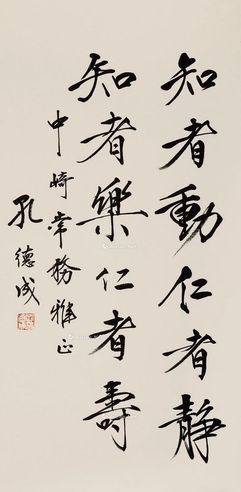 知者動仁者靜
知者樂仁者壽
中崎常務雅正
孔德成